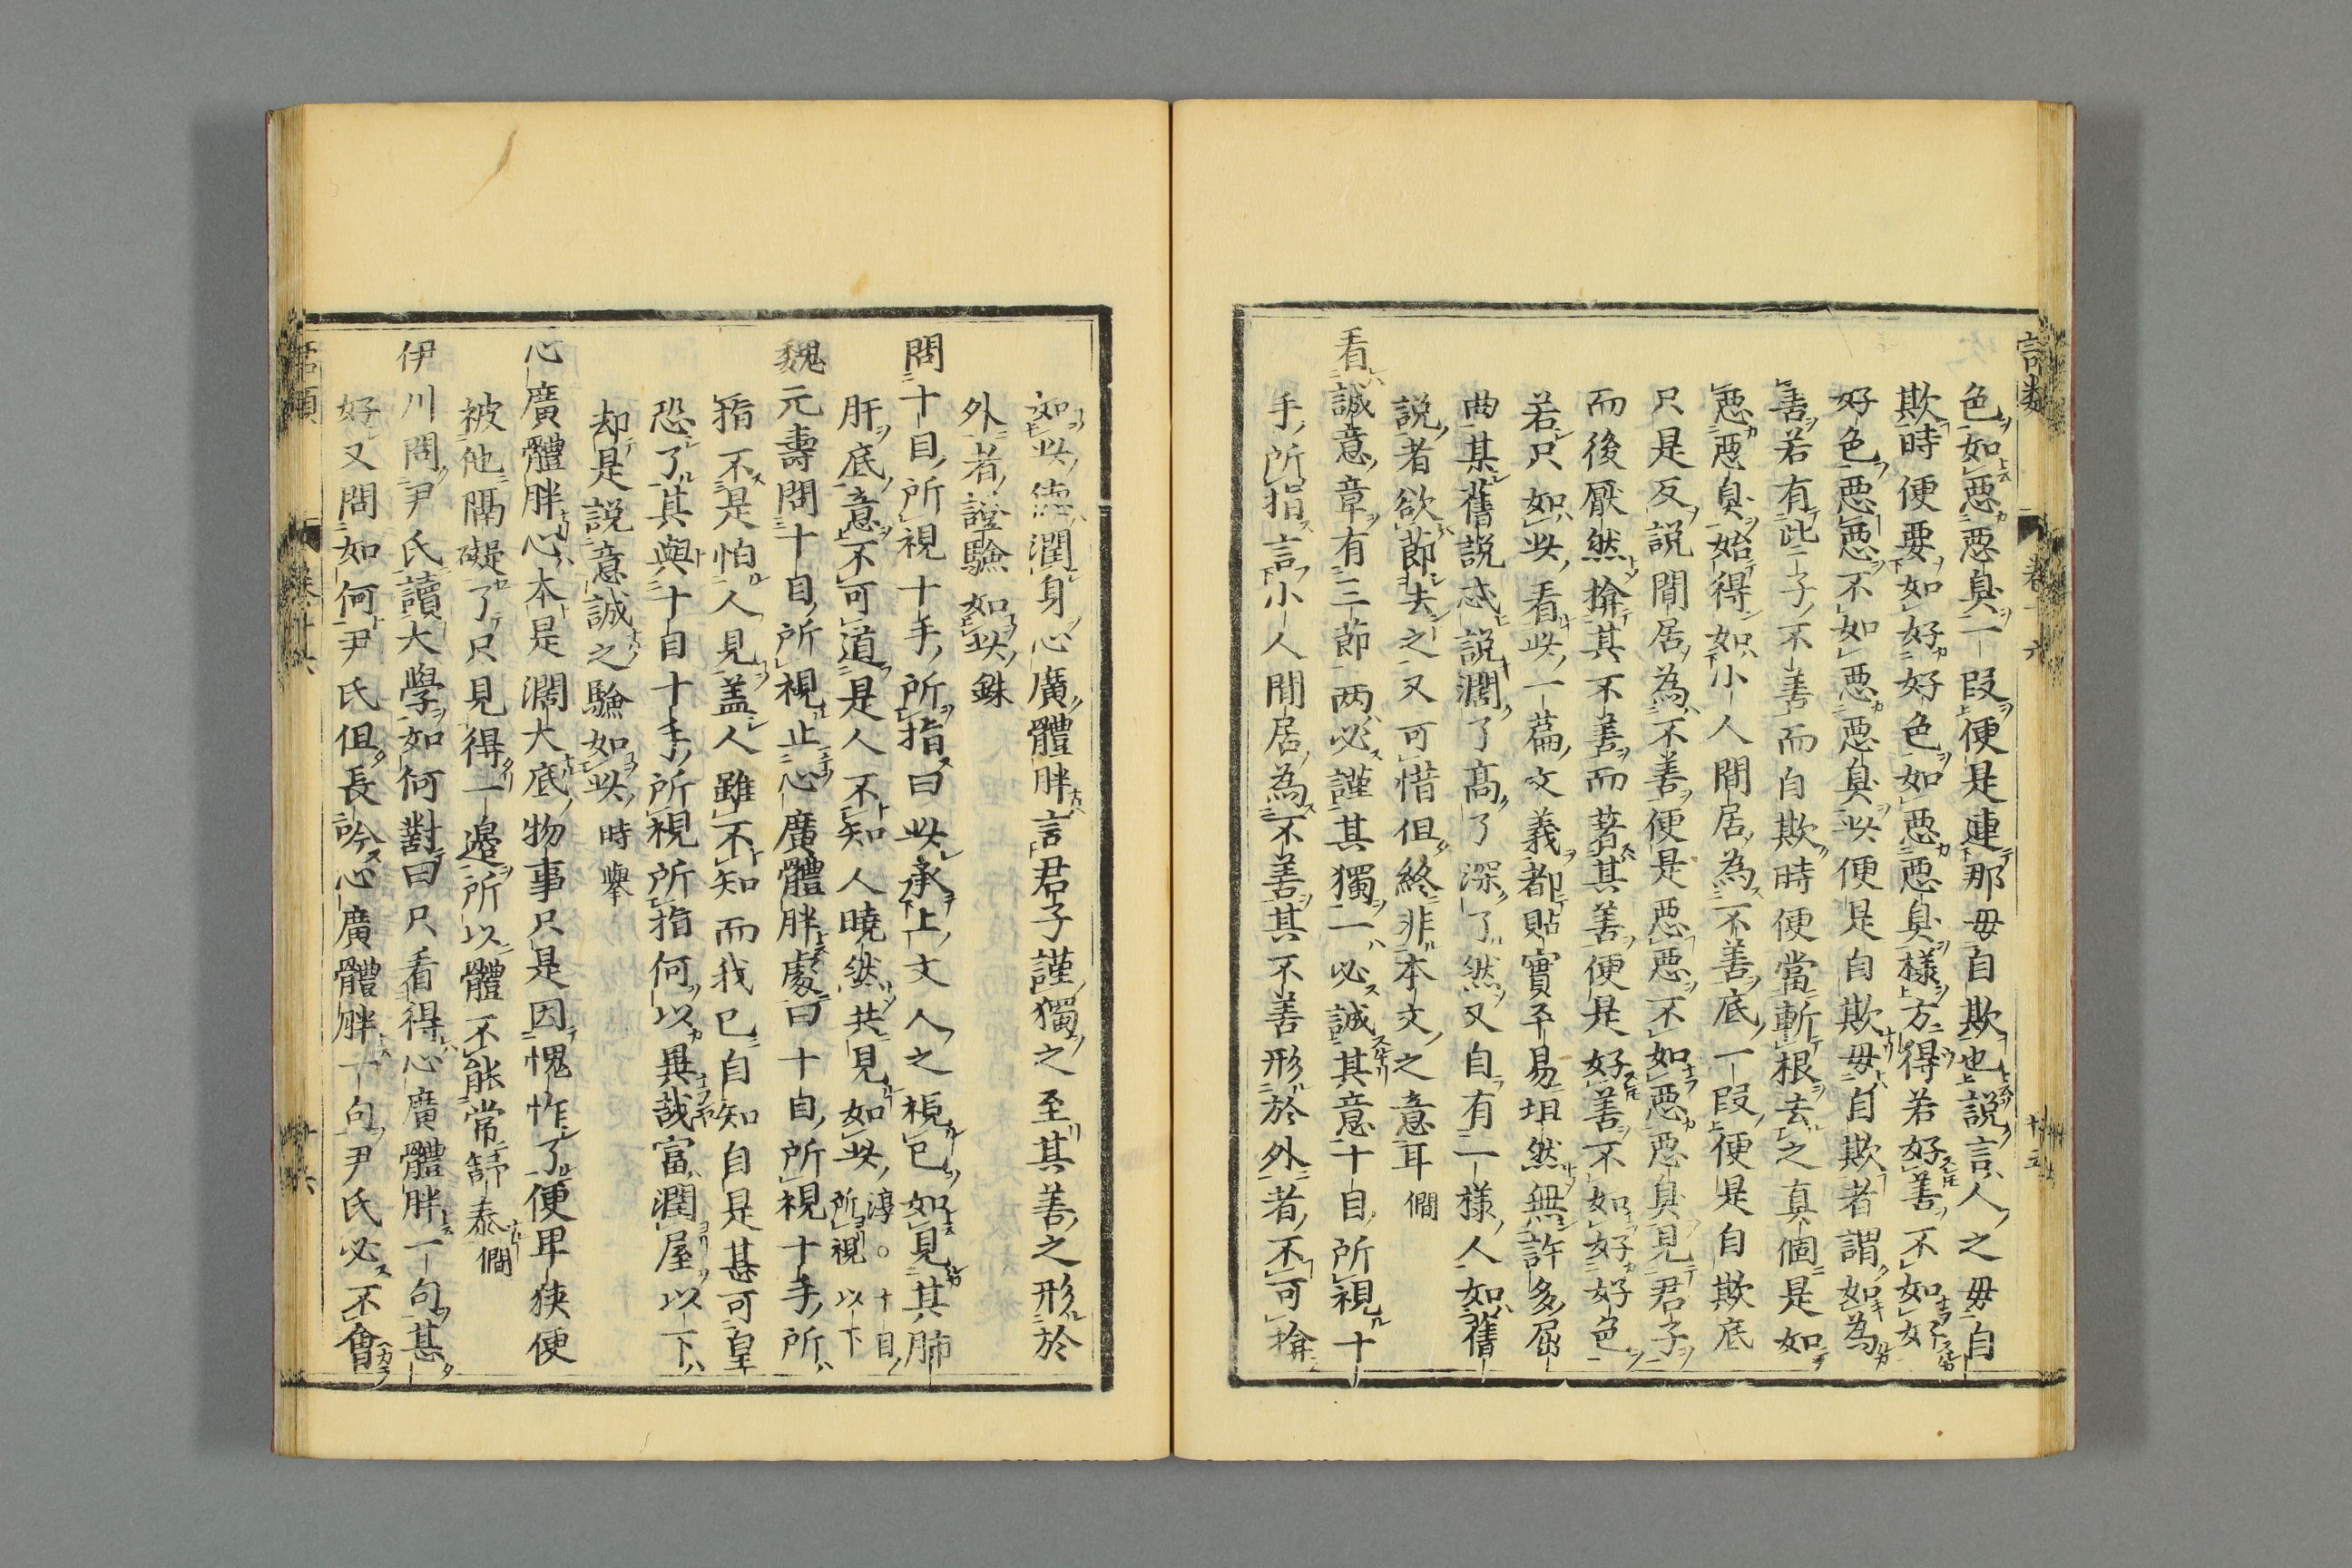 色如惡惡臭一段便是連那毋自欺也說言人之毋自
欺時便要如好好色如惡惡臭樣方得若好善不如好
好色惡惡不如惡惡臭此便是自欺毋自欺者謂如為
善若有些子不善而自欺時便當斬根去之真個是如
惡惡臭始得如小人閒居為不善底一段便是自欺底
只是反說閒居為不善便是惡惡不如惡惡臭見君子
而後厭然揜其不善而著其善便是好善不如好好色
若只如此看此一篇文義都貼實平易坦然無許多屈
曲某舊說忒說濶了高了深了然又自有一樣人如舊
說者欲節去之又可惜但終非本文之意耳 僩
看誠意章有三節兩必謹其獨一必誠其意十目所視十
手所指言小人閒居為不善其不善形於外者不可揜
如此德潤身心廣體胖言君子謹獨之至其善之形於
外者證驗如此 銖
問十目所視十手所指曰此承上文人之視己如見其肺
肝底意不可道是人不知人曉然共見如此 淳○十目所視以下
魏元壽問十目所視止心廣體胖處曰十目所視十手所
指不是怕人見蓋人雖不知而我已自知自是甚可皇
恐了其與十目十手所視所指何以異哉富潤屋以下
却是說意誠之驗如此 時舉
心廣體胖心本是濶大底物事只是因愧怍了便卑狹便
被他隔礙了只見得一邊所以體不能常舒泰 僩
伊川問尹氏讀大學如何對曰只看得心廣體胖一句甚
好又問如何尹氏但長吟心廣體胖一句尹氏必不會